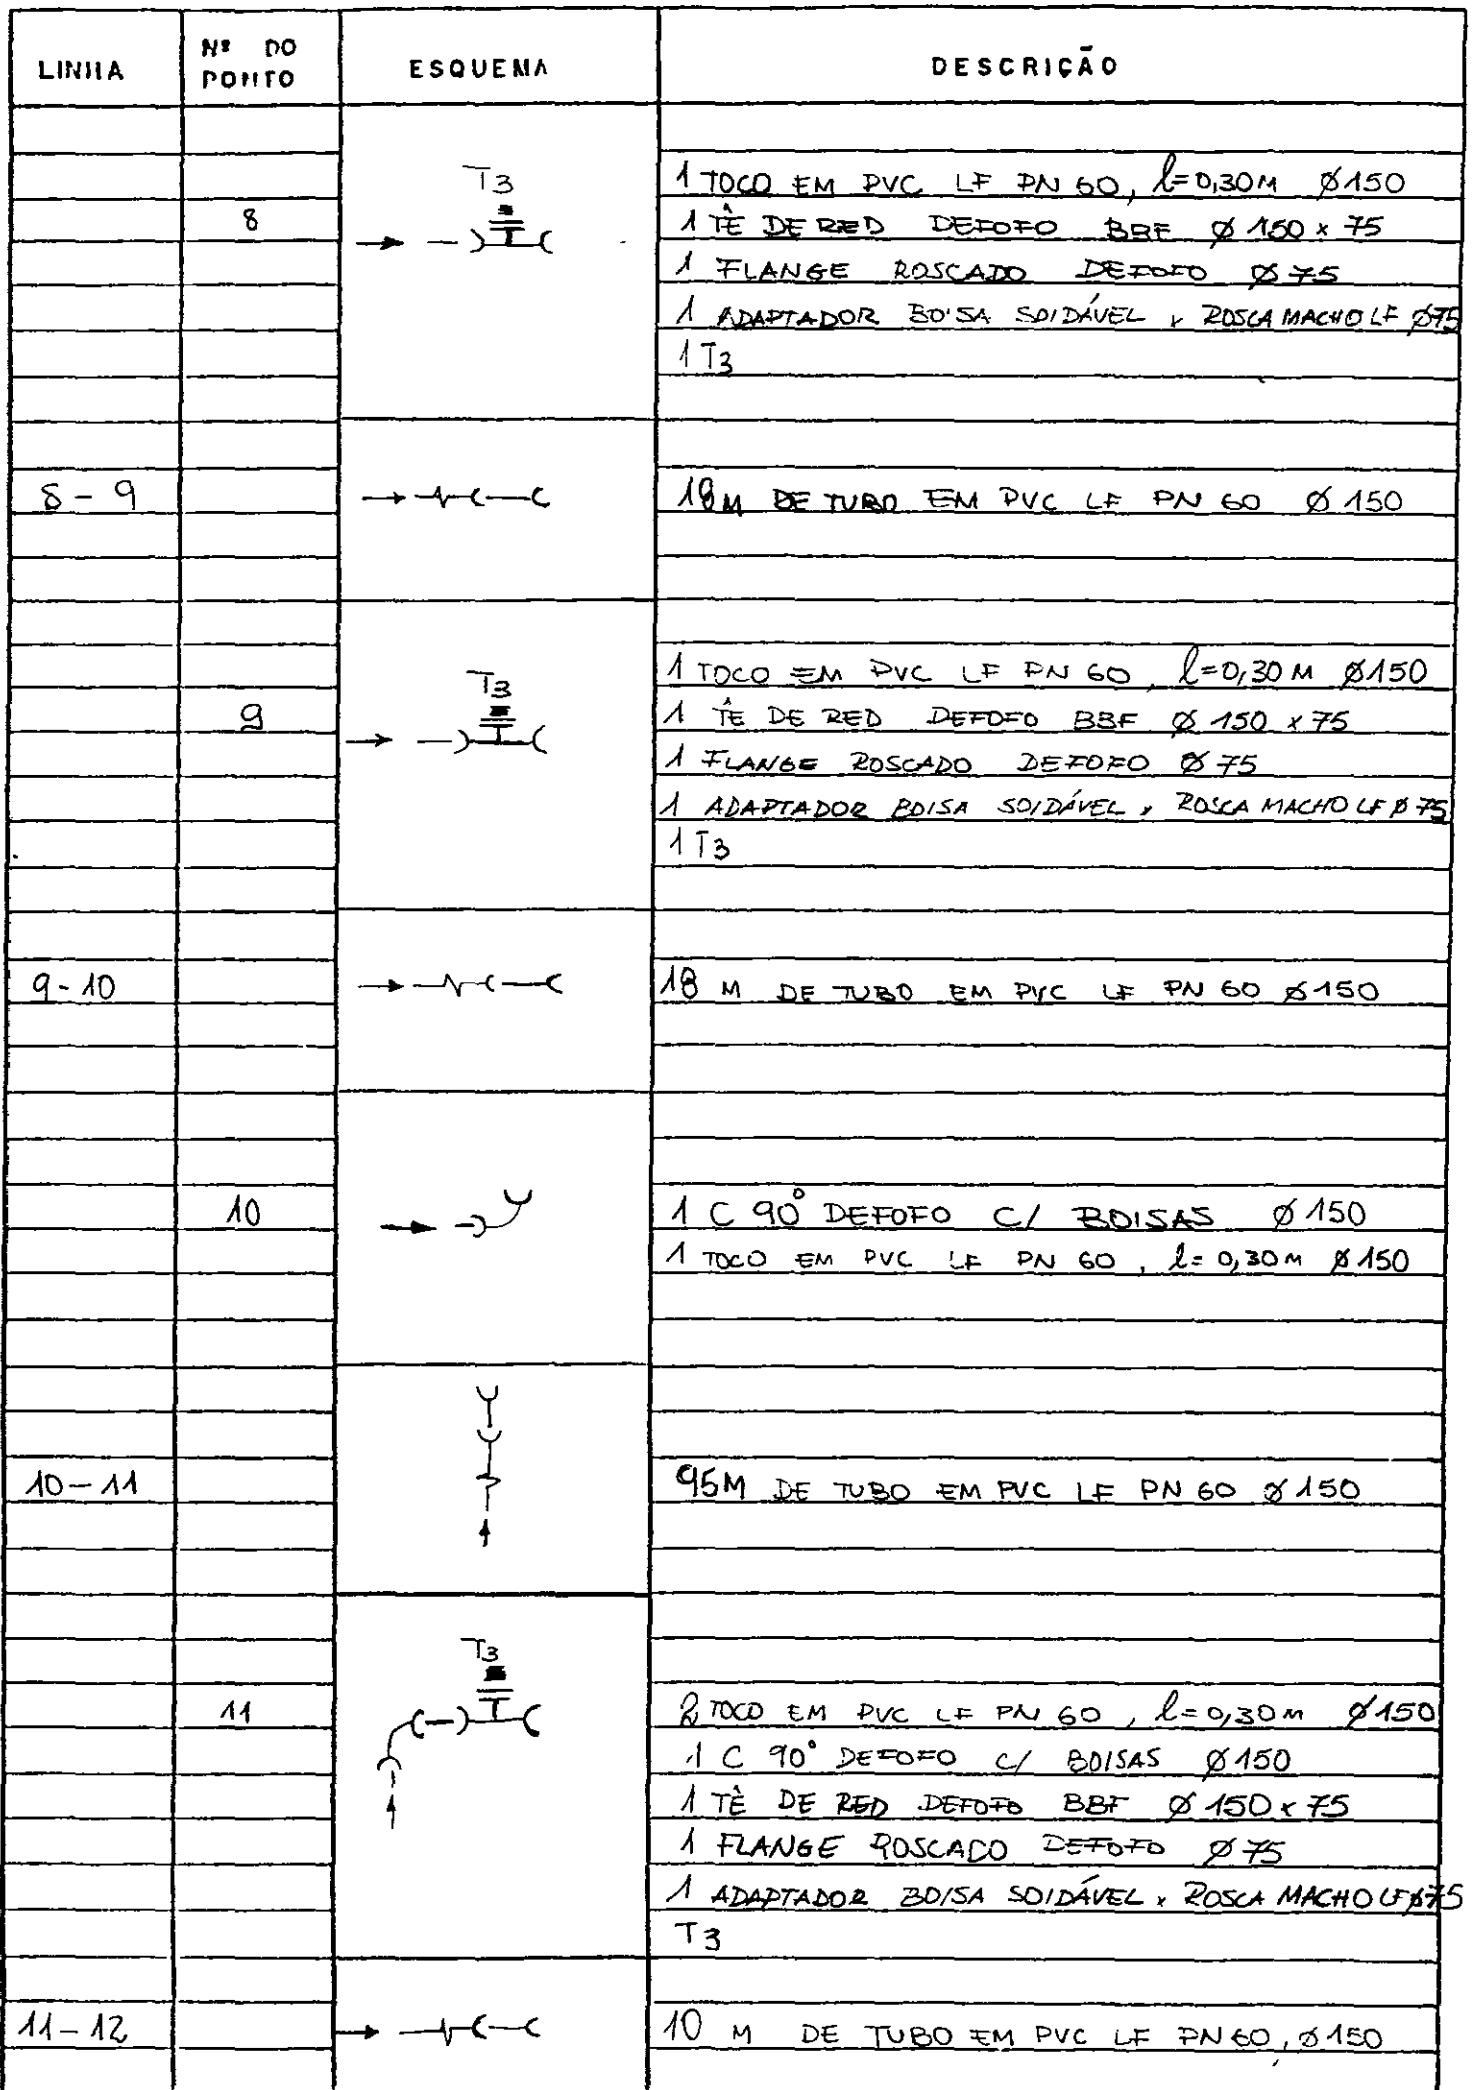 LINHA
Nº DO PONTO
ESQUEMA
DESCRIÇÃO
8
T3
1 TOCO EM PVC LF PN 60, l=0,30M Ø150
1 TÊ DE RED DEFOFO BBF Ø 150 x 75
1 FLANGE ROSCADO DEFOFO Ø 75
1 ADAPTADOR BOLSA SOLDÁVEL x ROSCA MACHO LF Ø75
1 T3
8 - 9
18M DE TUBO EM PVC LF PN 60 Ø 150
9
T3
1 TOCO EM PVC LF PN 60, l=0,30 M Ø150
1 TÊ DE RED DEFOFO BBF Ø 150 x 75
1 FLANGE ROSCADO DEFOFO Ø 75
1 ADAPTADOR BOLSA SOLDÁVEL x ROSCA MACHO LF Ø 75
1 T3
9 - 10
18 M DE TUBO EM PVC LF PN 60 Ø150
10
1 C 90° DEFOFO C/ BOLSAS Ø150
1 TOCO EM PVC LF PN 60, l= 0,30M Ø150
10 - 11
95M DE TUBO EM PVC LF PN 60 Ø150
11
T3
2 TOCO EM PVC LF PN 60, l=0,30M Ø150
1 C 90° DEFOFO C/ BOLSAS Ø150
1 TÊ DE RED DEFOFO BBF Ø 150 x 75
1 FLANGE ROSCADO DEFOFO Ø 75
1 ADAPTADOR BOLSA SOLDÁVEL x ROSCA MACHO LF Ø75
T3
11 - 12
10 M DE TUBO EM PVC LF PN 60, Ø150